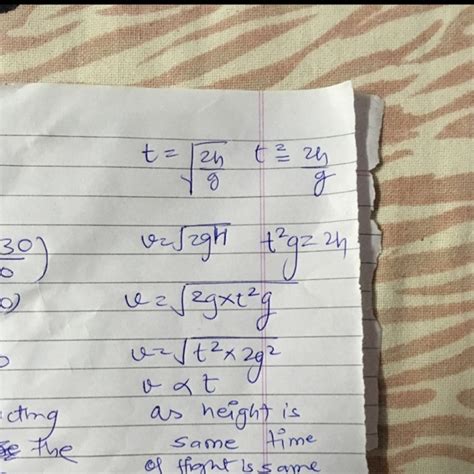 t = √(2h/g) t² = 2h/g
30) v = √2gH t²g = 2h
0) v = √2g×t²g
v = √t² × 2g²
v ∝ t
cting as height is
the same time
of flight is same